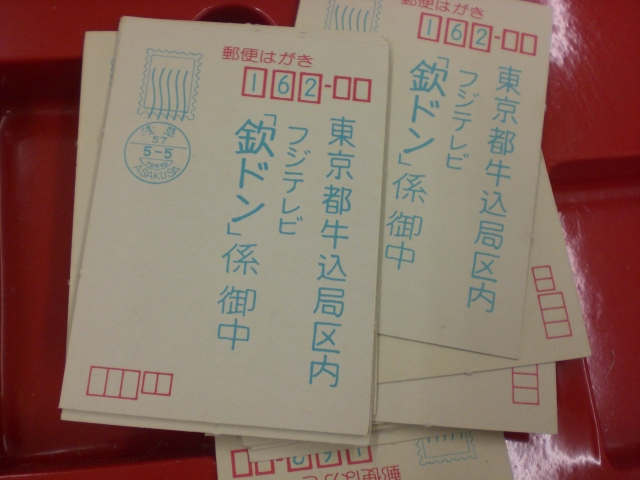 郵便はがき
162-
東京都牛込局区内
フジテレビ
「欽ドン」係御中
浅草
57
5-5
ASAKUSA
郵便はがき
162-
東京都牛込局区内
フジテレビ
「欽ドン」係御中
162-
郵便は